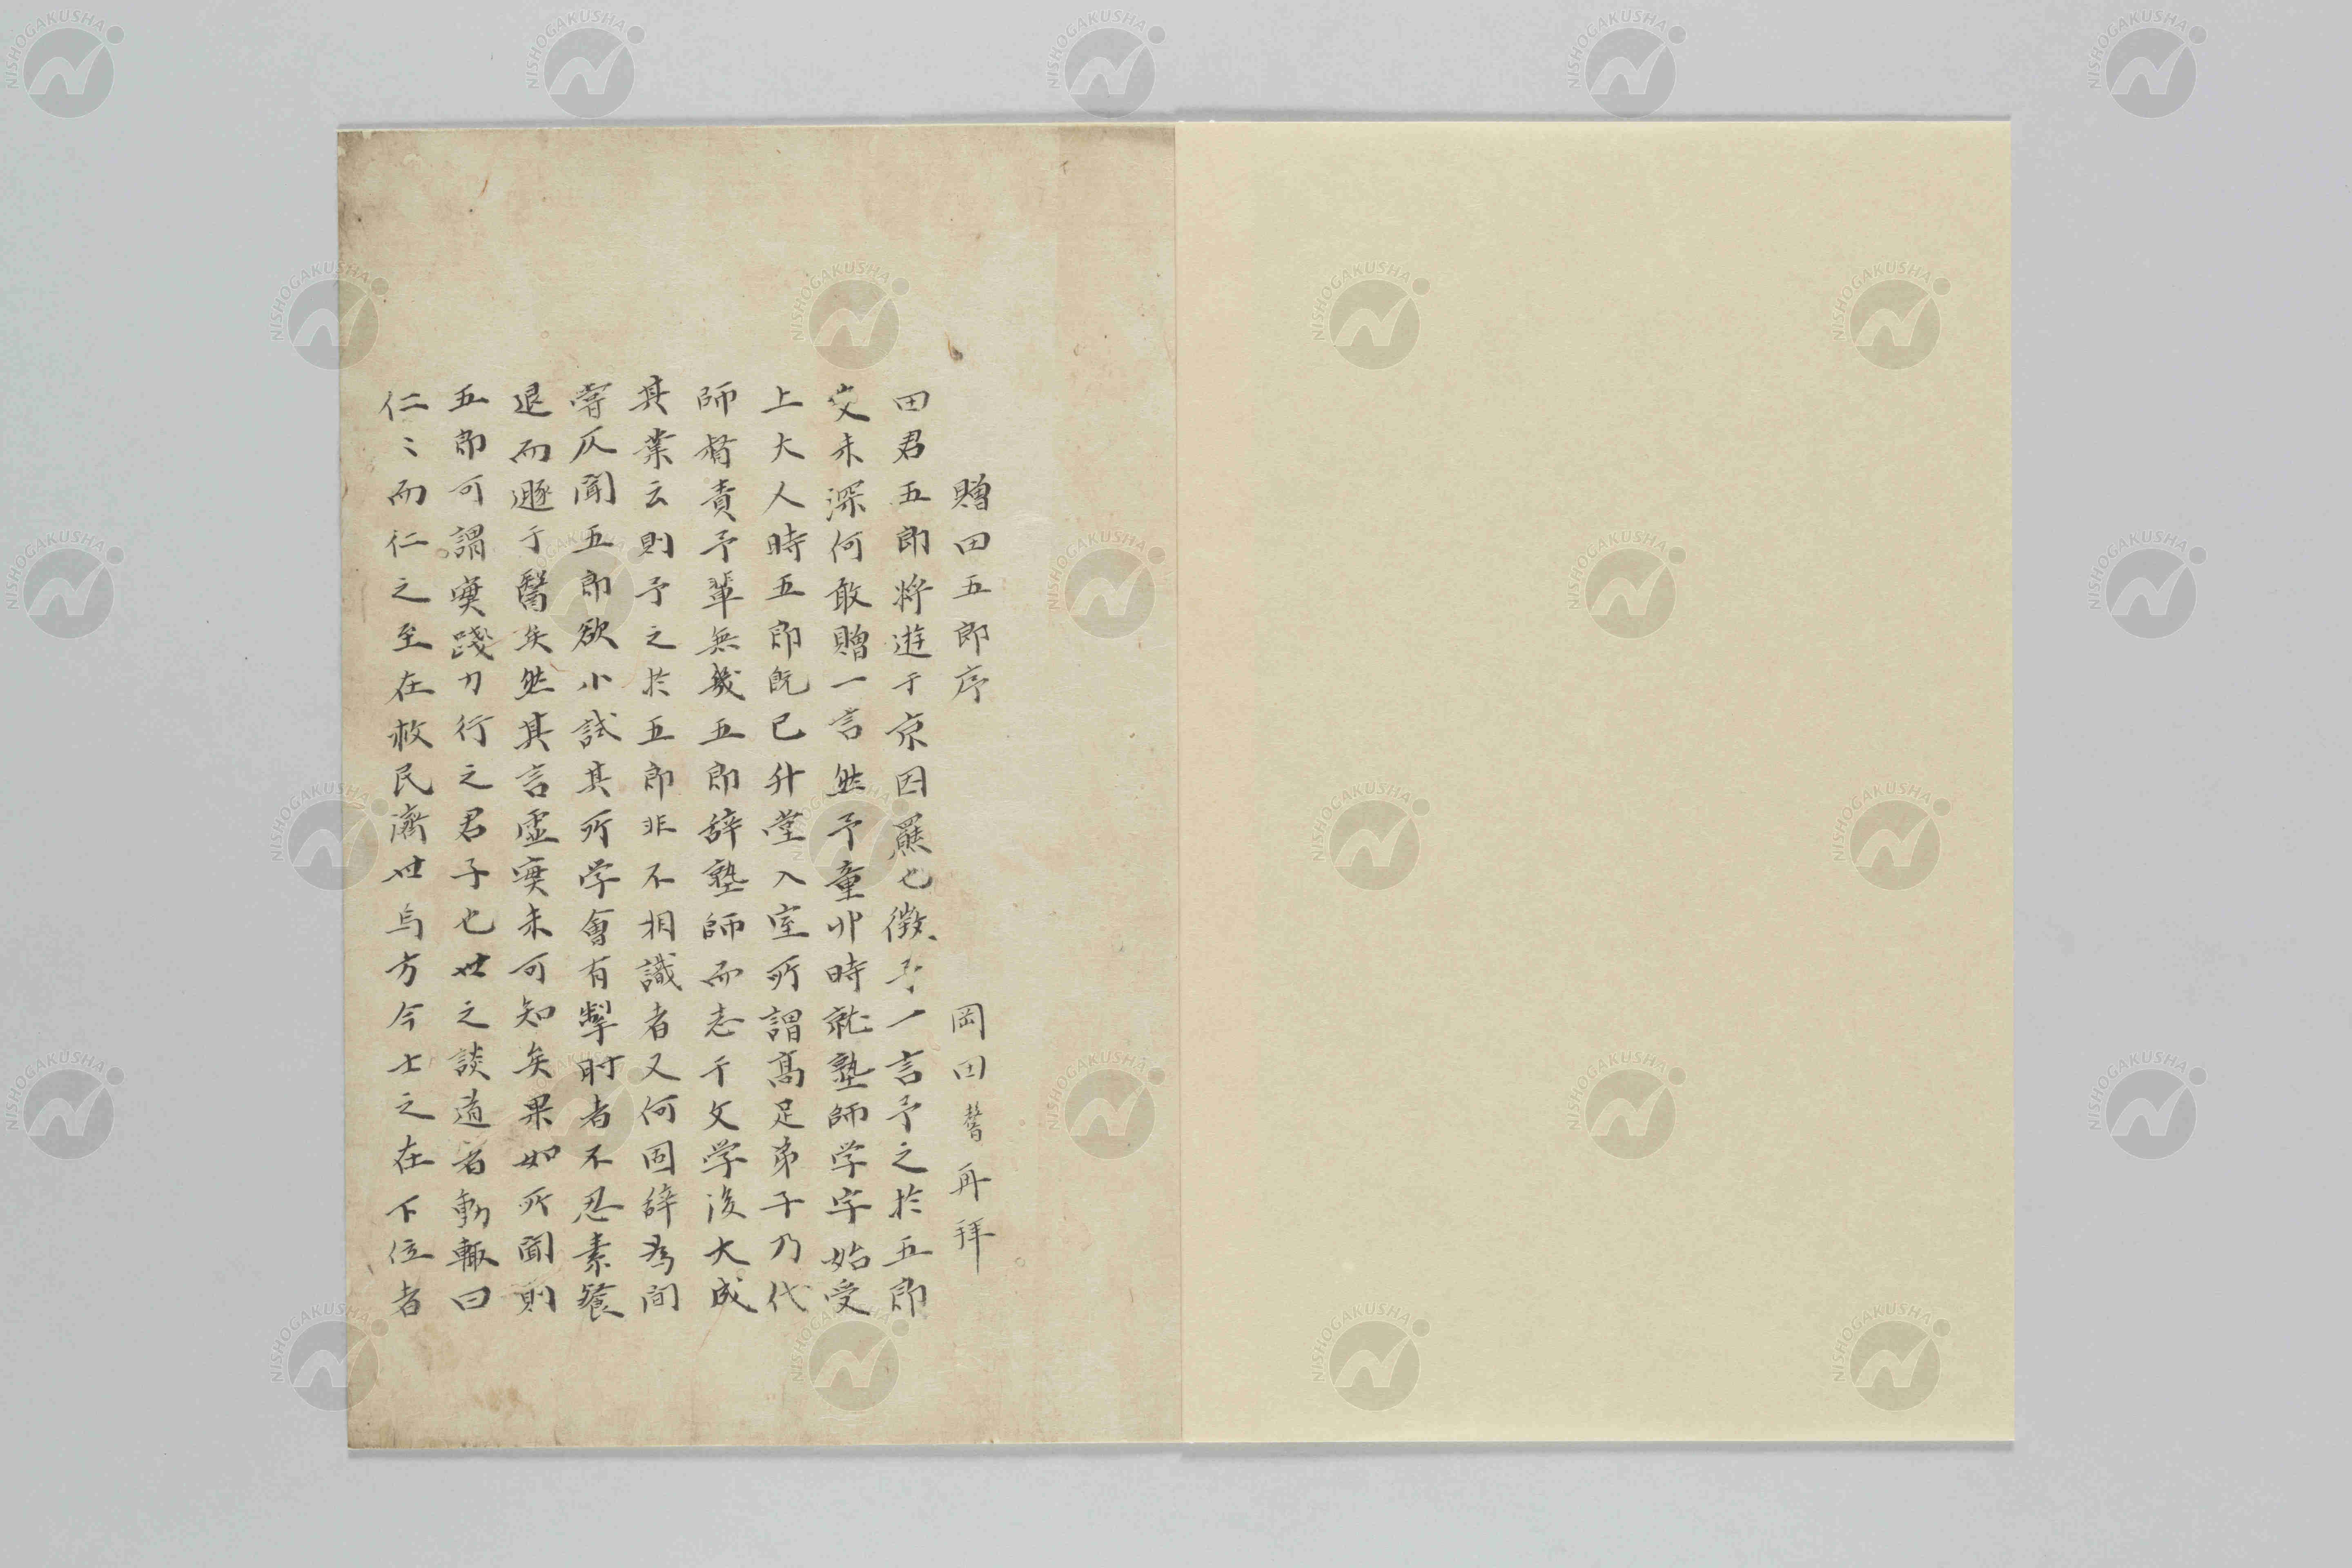 贈田五郎序
岡田謦再拜
田君五郎将遊于京因羆也徴予一言予之於五郎
交未深何敢贈一言然予童丱時就塾師学字始受
上大人時五郎既已升堂入室所謂高足弟子乃代
師督責予輩無幾五郎辞塾師而志于文学後大成
其業云則予之於五郎非不相識者又何固辞為間
嘗仄聞五郎欲小試其所学會有掣肘者不忍素餐
退而遯于醫矣然其言虚実未可知矣果如所聞則
五郎可謂実踐力行之君子也世之談道者動輙曰
仁〻而仁之至在救民濟世烏方今士之在下位者
NISHOGAKUSHA